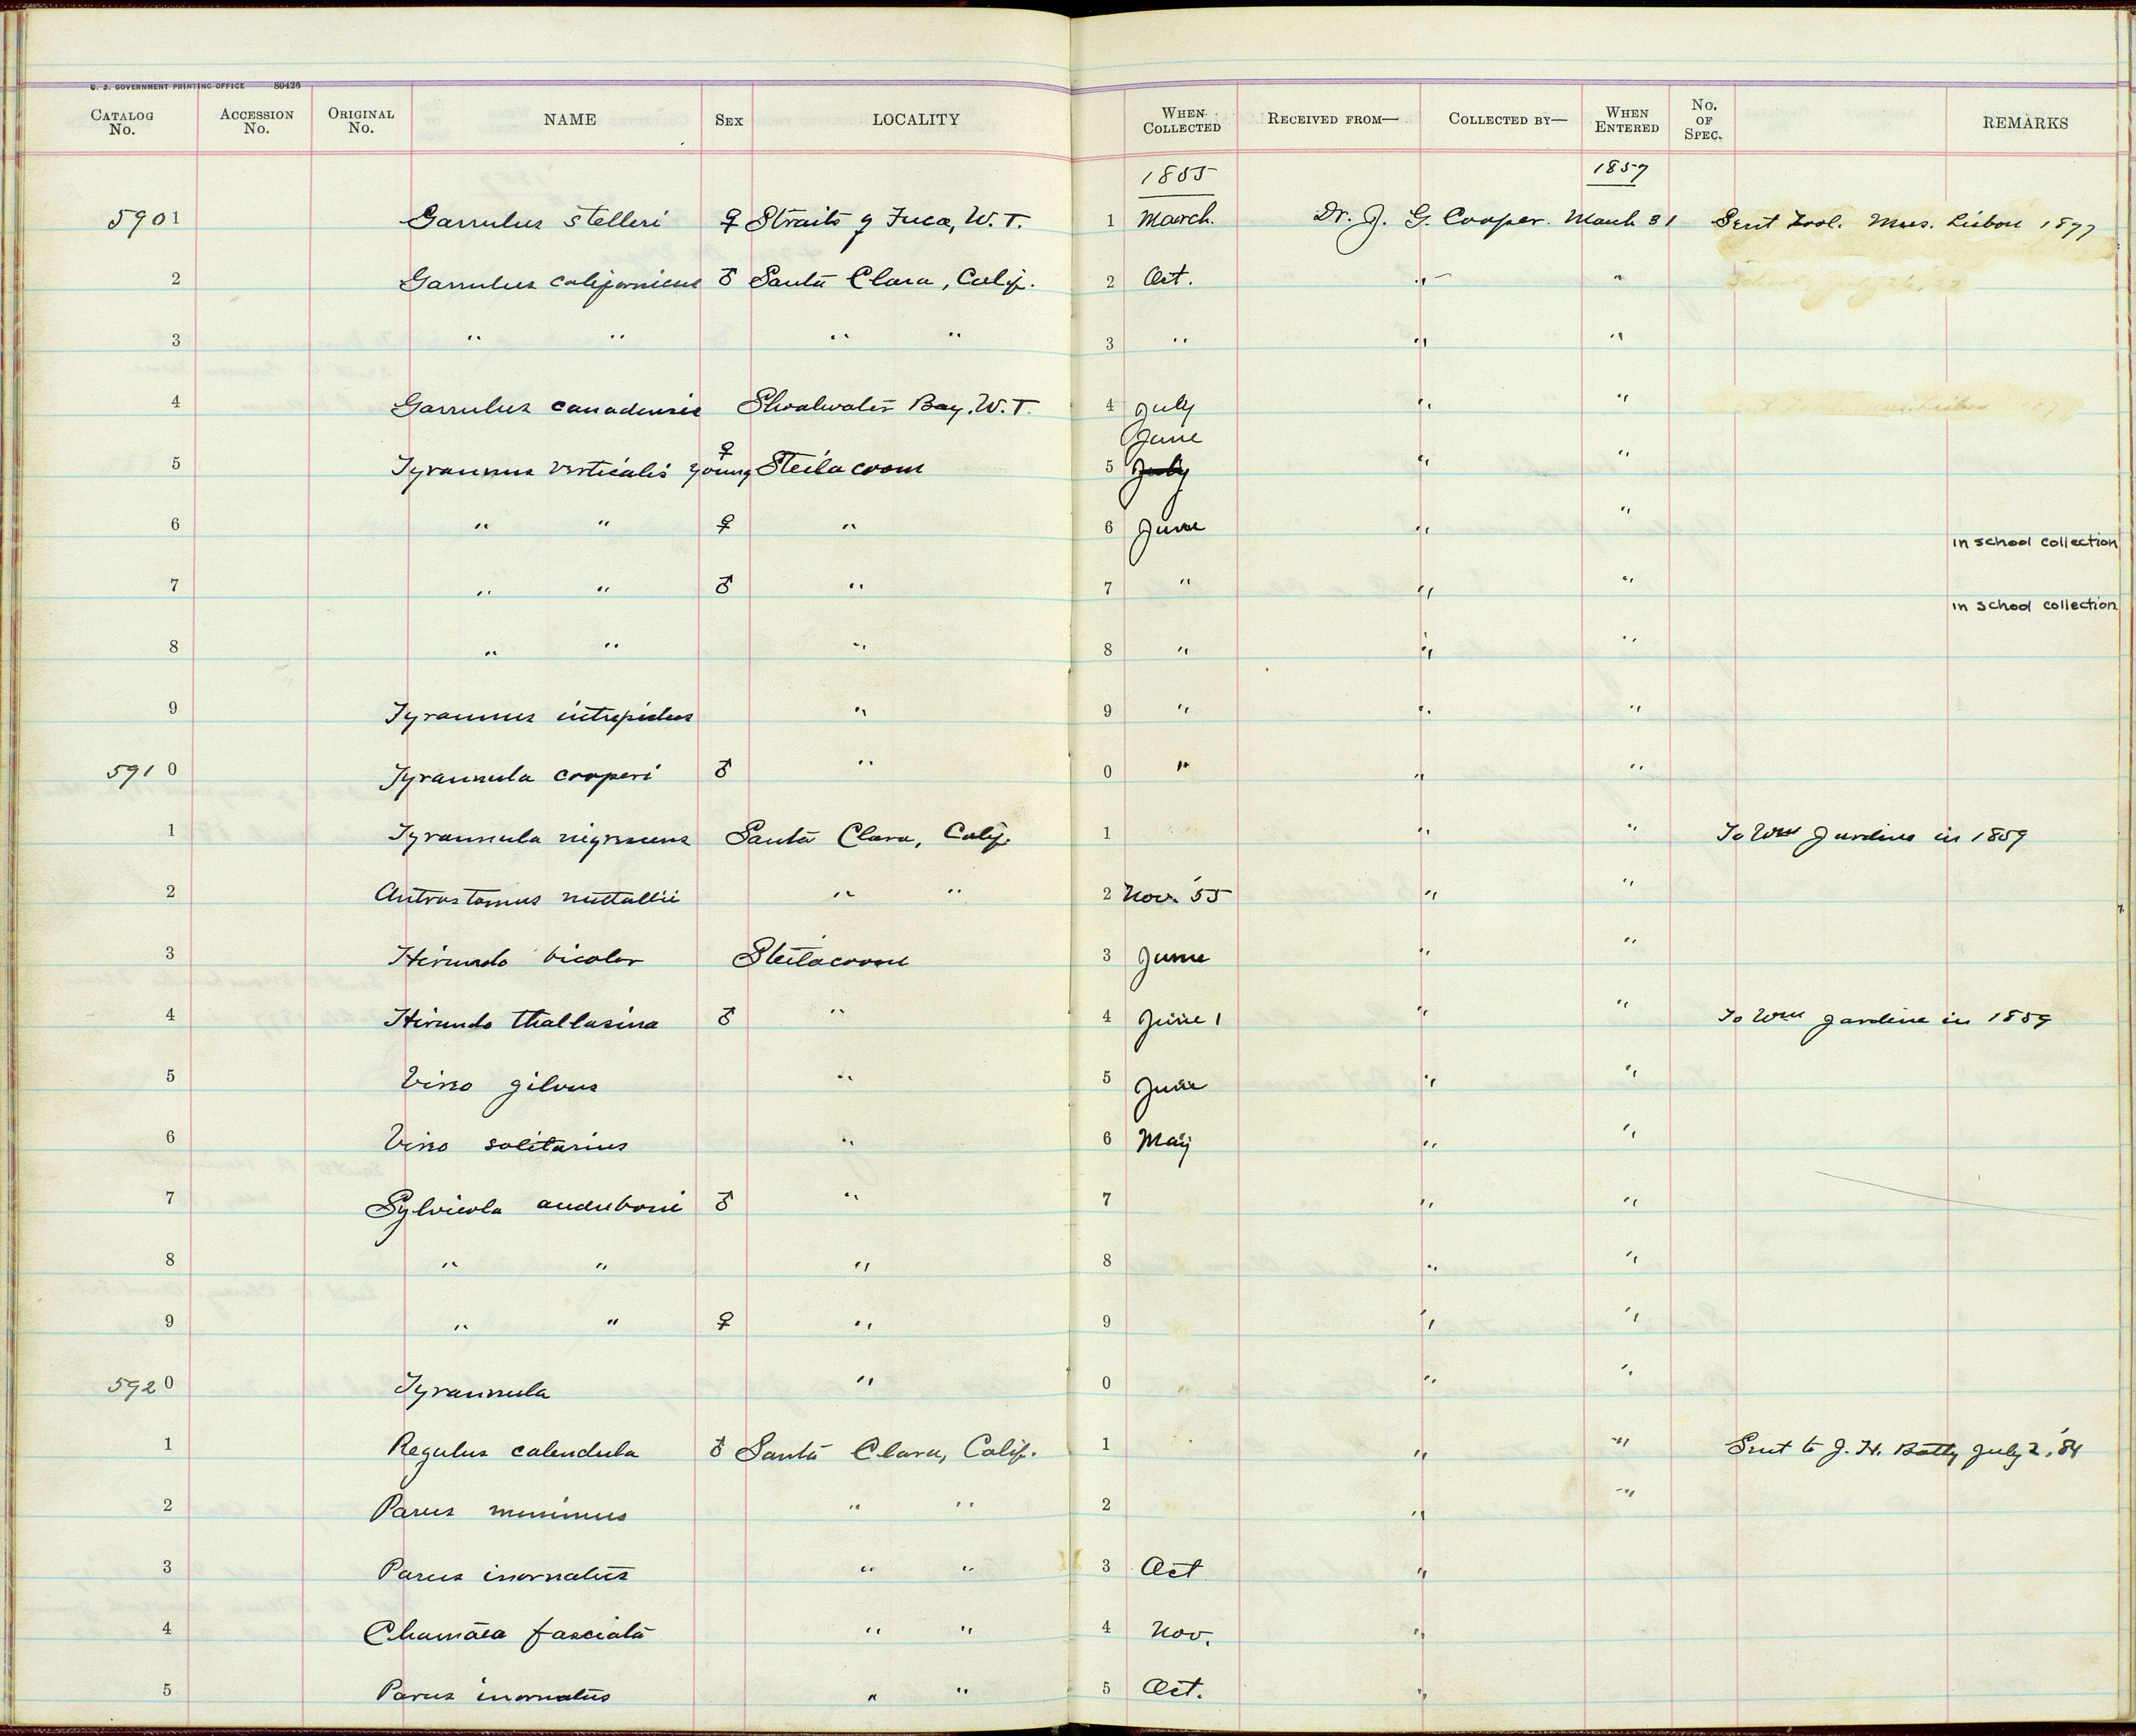 U. S. GOVERNMENT PRINTING OFFICE 80426
CATALOG No. ACCESSION No. ORIGINAL No. NAME SEX LOCALITY WHEN COLLECTED RECEIVED FROM— COLLECTED BY— WHEN ENTERED No. OF SPEC. REMARKS
1855 1857
5901 Garrulus stelleri ♀ Straits of Fuca, W. T. 1 March. Dr. J. G. Cooper. March 31 Sent Zool. Mus. Lisbon 1877
2 Garrulus californicus ♂ Santa Clara, Calif. 2 Oct. " " School, July 26, '82
3 " " " " 3 " " "
4 Garrulus canadensis Shoalwater Bay, W. T. 4 July " " Lisbon 187
♀ June
5 Tyrannus verticalis young Steilacoom 5 July " "
6 " " ♀ " 6 June " " in school collection
7 " " ♂ " 7 " " " in school collection
8 " " " 8 " " "
9 Tyrannus intrepidus " 9 " " "
5910 Tyrannula cooperi ♂ " 0 " " "
1 Tyrannula nigrescens Santa Clara, Calif. 1 " " To Wm Jardine in 1859
2 Antrostomus nuttallii " " 2 Nov. '55 " "
3 Hirundo bicolor Steilacoom 3 June " "
4 Hirundo thallasina ♂ " 4 June 1 " " To Wm Jardine in 1859
5 Vireo gilvus " 5 June " "
6 Vireo solitarius " 6 May " "
7 Sylvicola auduboni ♂ " 7 " "
8 " " " 8 " "
9 " " ♀ " 9 " "
5920 Tyrannula " 0 " "
1 Regulus calendula ♂ Santa Clara, Calif. 1 " " Sent to J. H. Batty July 2, '84
2 Parus minimus " " 2 " "
3 Parus inornatus " " 3 Oct "
4 Chamaea fasciata " " 4 Nov. "
5 Parus inornatus " " 5 Oct. "